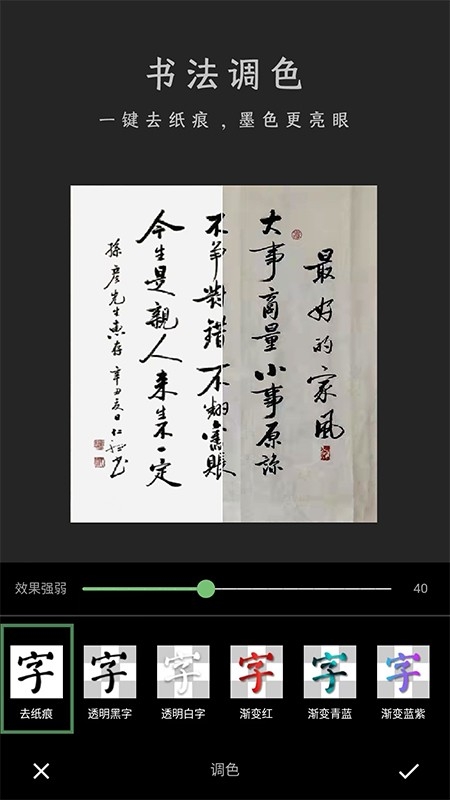 书法调色
一键去纸痕，墨色更亮眼
最好的家风
大事商量小事原谅
不争對錯不翻舊賬
今生是親人来生不一定
孫彦先生惠存 辛丑夏日仁
效果强弱
40
字
去纸痕
字
透明黑字
字
透明白字
字
渐变红
字
渐变青蓝
字
渐变蓝紫
调色